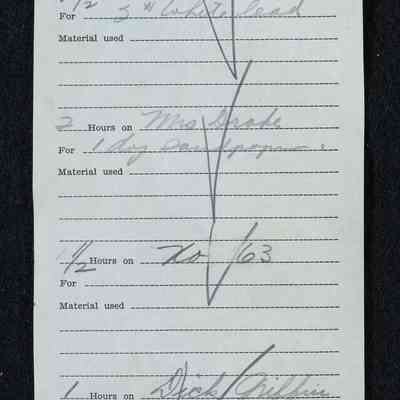 1/2
For 3 # White lead
Material used
2 Hours on Mrs Drake
For 1 doz Sandpaper
Material used
1/2 Hours on No 163
For
Material used
1 Hours on Dick